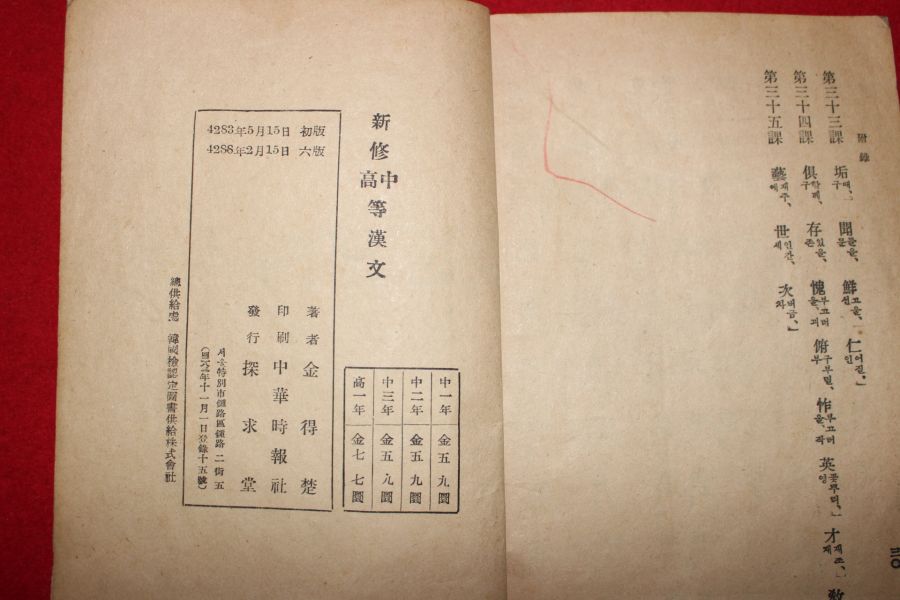 附錄
第三十三課 垢때,구 聞들을,문 鮮고을,선 仁어질,인
第三十四課 俱함께,구 存있을,존 愧부끄러을,괴 俯구부릴,부 怍부끄러을,작 英꽃뿌리,영 才재조,재
第三十五課 藝재주,예 世인간,세 次버금,차
三〇
新修中高等漢文
中一年 金五九圜
中二年 金五九圜
中三年 金五九圜
高一年 金七七圜
4283年5月15日 初版
4288年2月15日 六版
著者 金得楚
印刷 中華時報社
發行 探求堂
서울特別市鍾路區鍾路二街五
年十一月一日登錄十五號
總供給處 韓國檢認定圖書供給株式會社